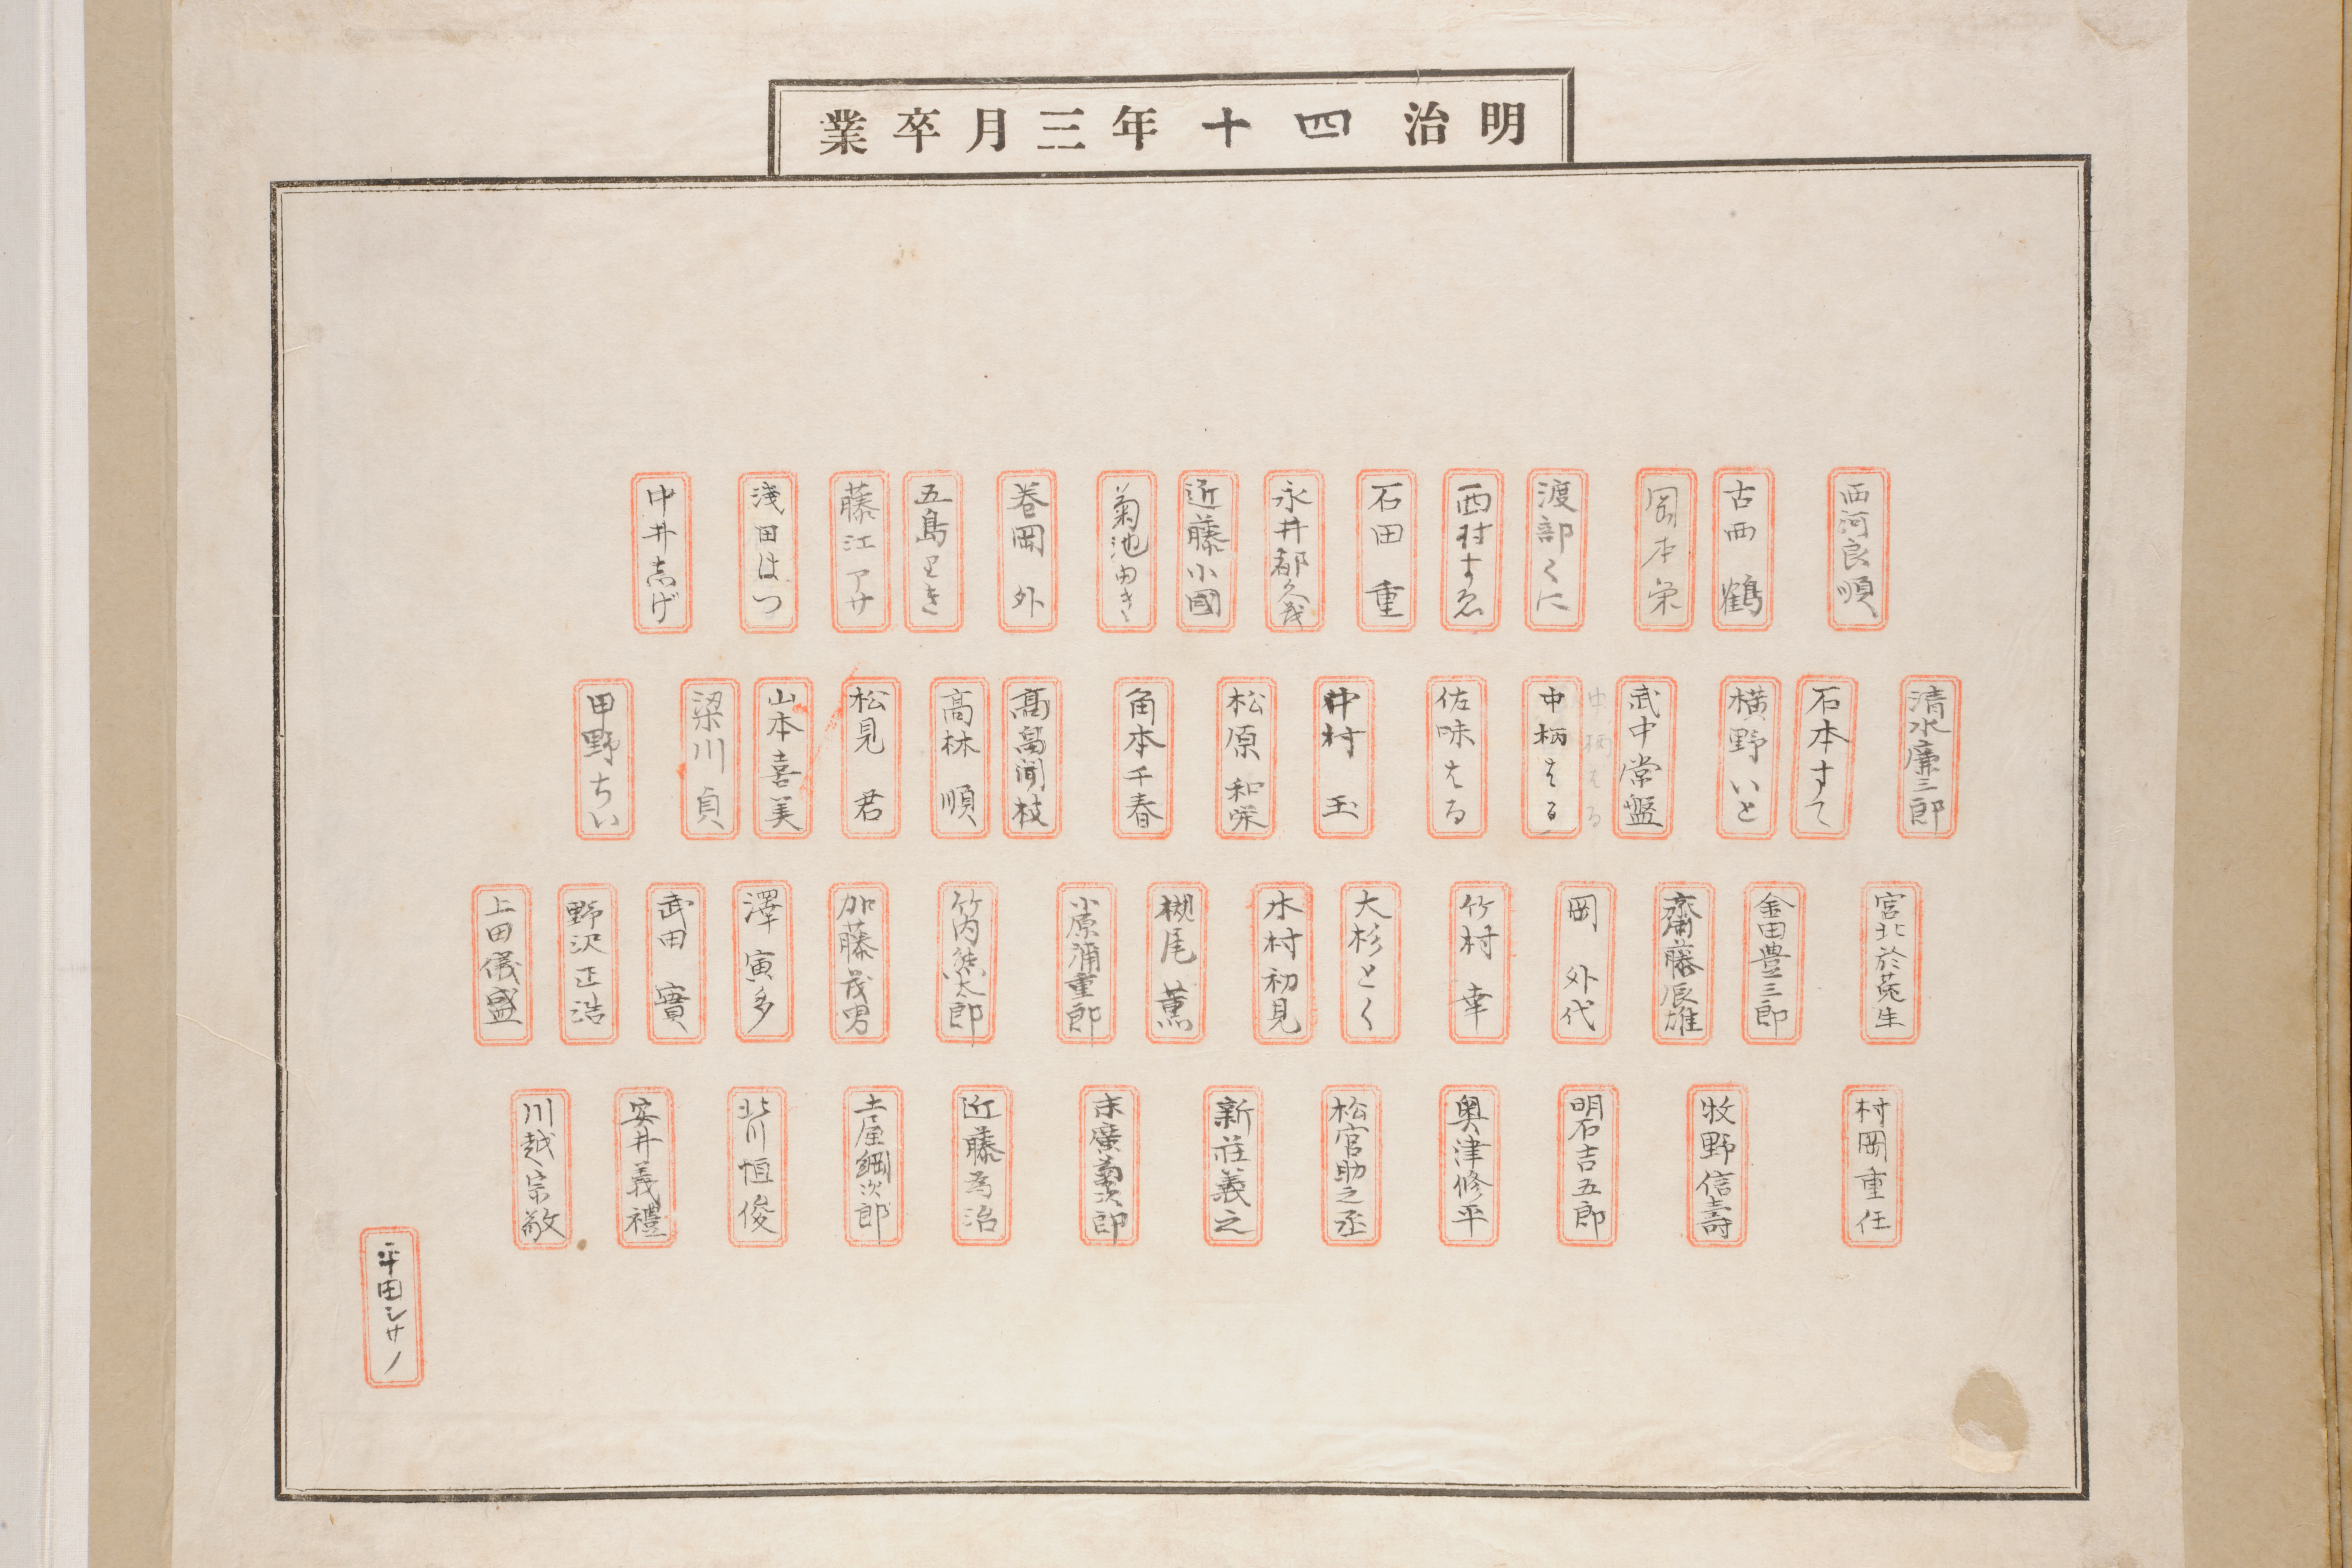 明治四十年三月卒業
西河良順
古西鶴
岡本栄
渡部くに
西村すゑ
石田重
永井都久茂
近藤小國
菊池由き
巻岡外
五島とき
藤江アサ
淺田はつ
中井志げ
清水廉三郎
石本すて
横野いと
武中常盤
中柄はる
中柄はる
佐味はる
中村玉
松原和栄
角本千春
髙畠聞枝
高林順
松見君
山本喜美
梁川貞
甲野ちい
宮北於菟生
金田豊三郎
齋藤辰雄
岡外代
竹村幸
大杉とく
木村初見
槻尾薫
小原浦重郎
竹内熊太郎
加藤茂男
澤寅多
武田實
野沢正浩
上田儀盛
村岡重任
牧野信壽
明石吉五郎
奥津修平
松官助之丞
新荘義之
末廣菊次郎
近藤為治
土屋綱次郎
北川恒俊
安井義禮
川越宗敬
平田シサノ